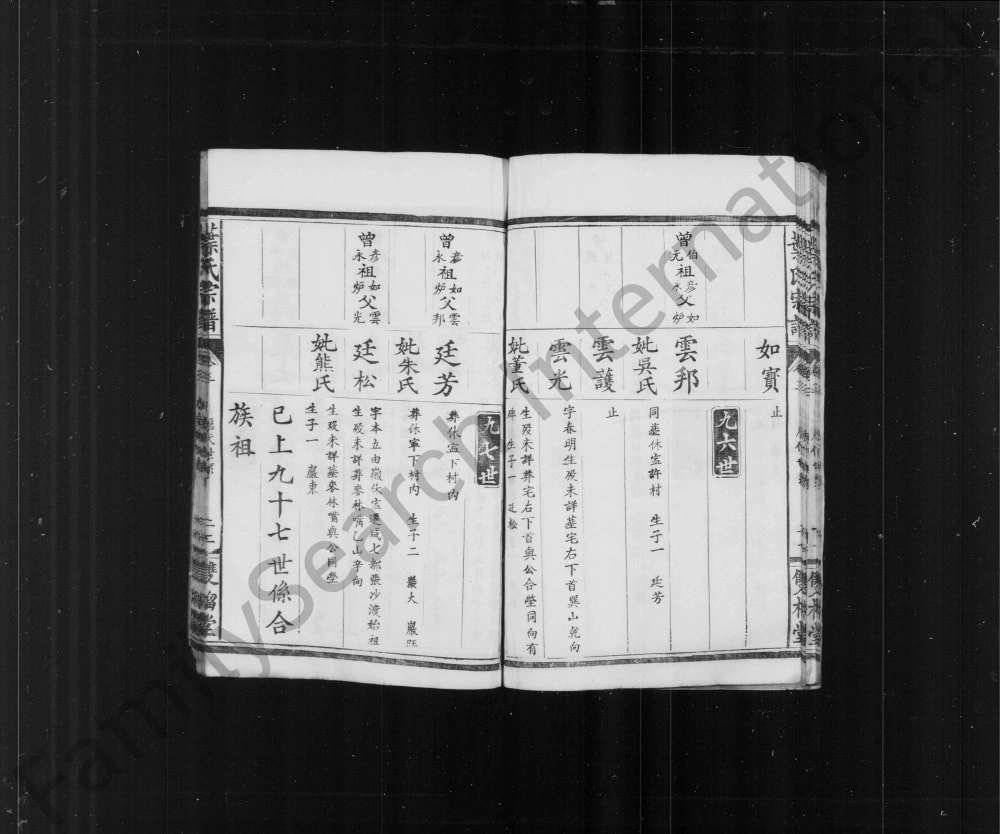 如寶
止
九六世
曾
伯元
祖
彦永
父
如炉
雲邦
同葬休寧許村 生子一 廷芳
妣吳氏
雲護
止
雲光
字春明生殁未詳墓宅右下首巽山乾向
妣董氏
生殁未詳葬宅右下首與公合塋同向有
碑 生子一 廷松
九七世
曾
彦永
祖
如炉
父
雲邦
廷芳
葬休寧下村内
妣朱氏
葬休寧下村内 生子二 巖大 巖旺
曾
彦永
祖
如炉
父
雲光
廷松
字本立由徽休寧遷 七都張沙渡始祖
生殁未詳葬麥林嘴 山辛向
妣熊氏
生殁未詳墓麥林嘴與公同塋
生子一 巖東
已上九十七世係合
族祖
葉氏宗譜
雙橊堂
FamilySearch International